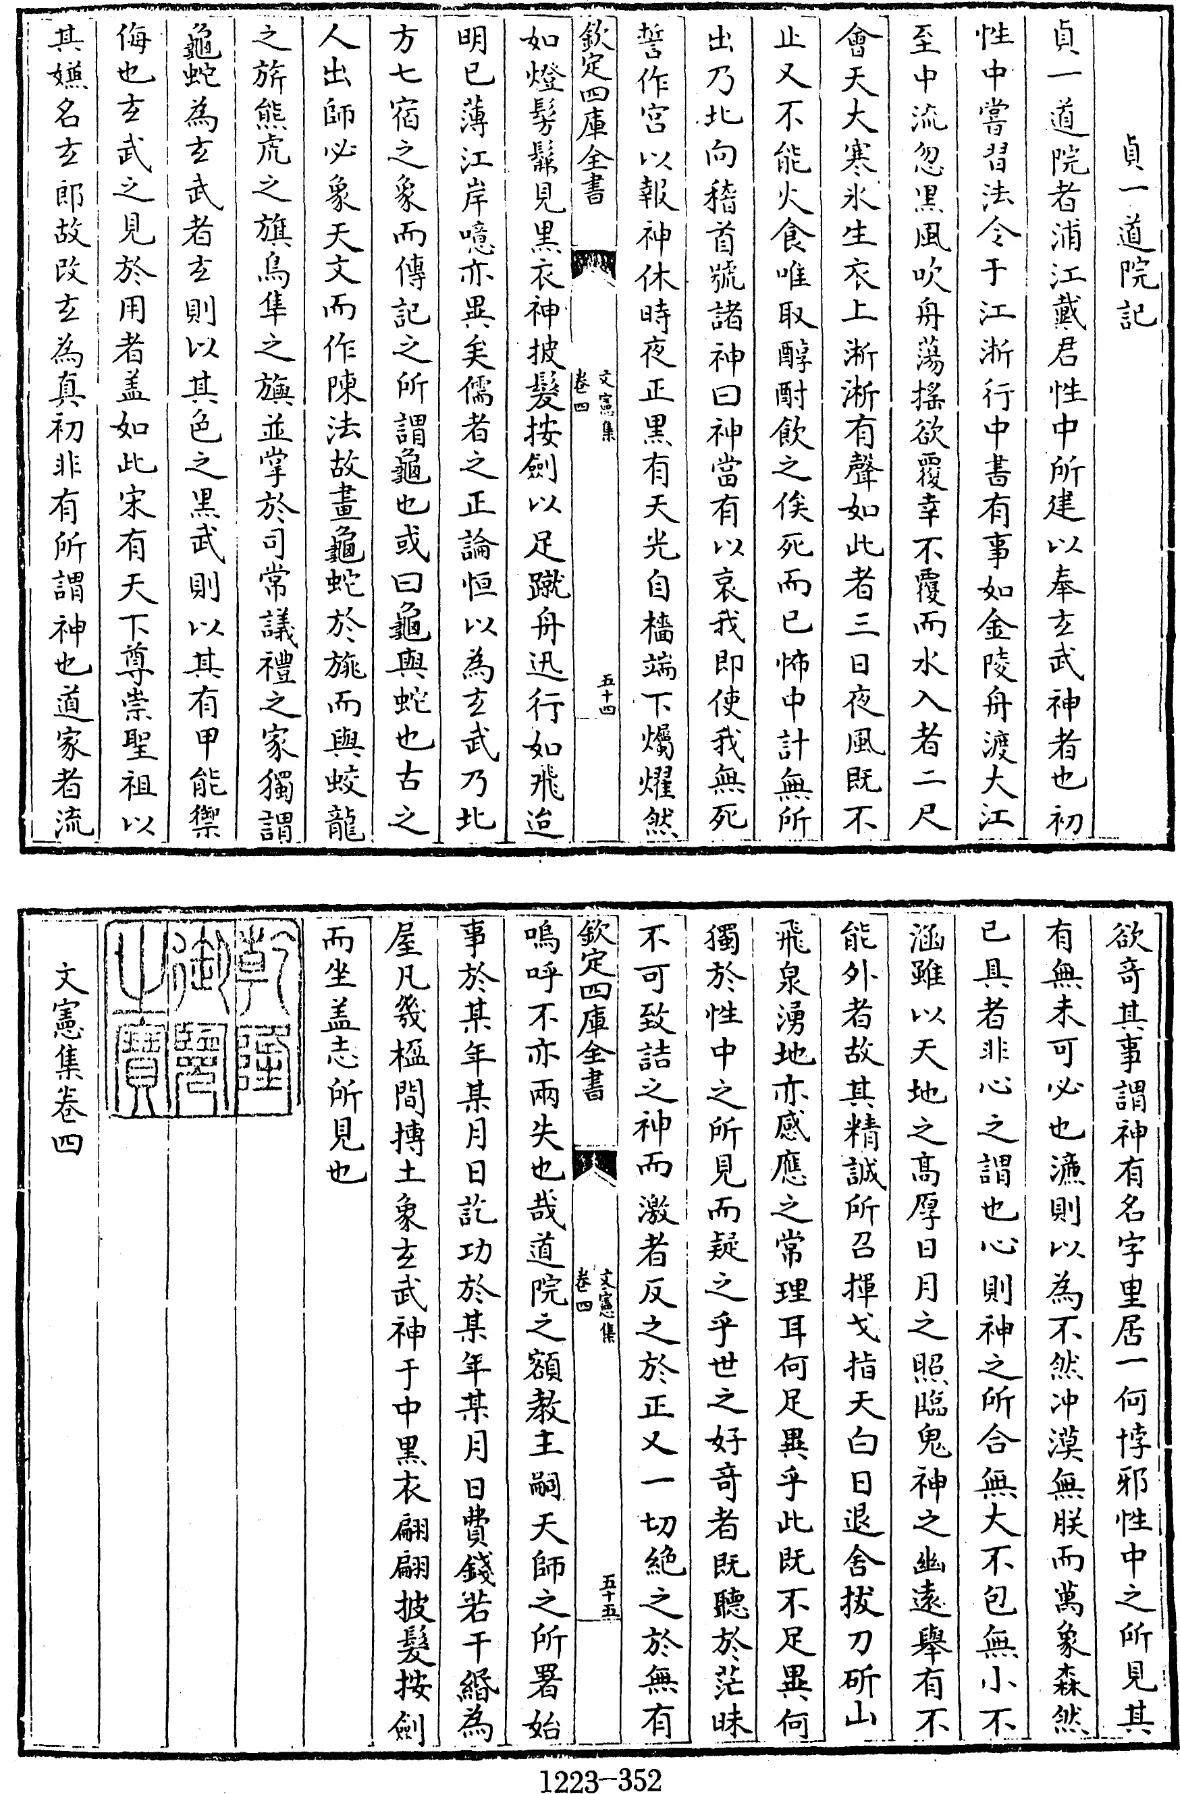 貞一道院記
貞一道院者浦江戴君性中所建以奉玄武神者也初
性中嘗習法令于江淛行中書有事如金陵舟渡大江
至中流忽黑風吹舟蕩搖欲覆幸不覆而水入者二尺
會天大寒氷生衣上淅淅有聲如此者三日夜風既不
止又不能火食唯取醇酎飲之俟死而已怖中計無所
出乃北向稽首號諸神曰神當有以哀我即使我無死
誓作宫以報神休時夜正黒有天光自檣端下爥燿然
欽定四庫全書
文憲集
卷四
五十四
如燈髣髴見黒衣神披髮按劍以足蹴舟迅行如飛迨
明已薄江岸噫亦異矣儒者之正論恒以為玄武乃北
方七宿之象而傳記之所謂龜也或曰龜與蛇也古之
人出師必象天文而作陳法故畫龜蛇於旐而與蛟龍
之旂熊虎之旗鳥隼之旟並掌於司常議禮之家獨謂
龜蛇為玄武者玄則以其色之黒武則以其有甲能禦
侮也玄武之見於用者盖如此宋有天下尊崇聖祖以
其嫌名玄郎故改玄為真初非有所謂神也道家者流
欲竒其事謂神有名字里居一何悖邪性中之所見其
有無未可必也濂則以為不然冲漠無朕而萬象森然
已具者非心之謂也心則神之所合無大不包無小不
涵雖以天地之髙厚日月之照臨鬼神之幽遠舉有不
能外者故其精誠所召揮戈指天白日退舍拔刀斫山
飛泉湧地亦感應之常理耳何足異乎此既不足異何
獨於性中之所見而疑之乎世之好竒者既聽於茫昧
不可致詰之神而激者反之於正又一切絶之於無有
欽定四庫全書
文憲集
卷四
五十五
嗚呼不亦兩失也哉道院之額教主嗣天師之所署始
事於某年某月日訖功於某年某月日費錢若干緡為
屋凡幾楹間摶土象玄武神于中黒衣翩翩披髮按劍
而坐盖志所見也
乾隆御覽之寶
文憲集卷四
1223-352